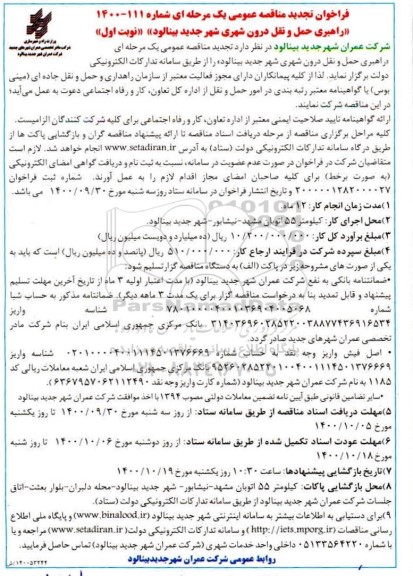 فراخوان تجدید مناقصه عمومی یک مرحله ای شماره ۱۱۱-۱۴۰۰
«راهبری حمل و نقل درون شهری شهر جدید بینالود» «نوبت اول»
شرکت عمران شهر جدید بینالود در نظر دارد تجدید مناقصه عمومی یک مرحله ای
«راهبری حمل و نقل درون شهری شهر جدید بینالود» را از طریق سامانه تدارکات الکترونیکی
دولت برگزار نماید. لذا از کلیه پیمانکاران دارای مجوز فعالیت معتبر از سازمان راهداری و حمل و نقل جاده ای (مینی
بوس) یا گواهینامه معتبر رتبه بندی در امور حمل و نقل از اداره کل تعاون، کار و رفاه اجتماعی دعوت به عمل می‌آید؛
در این مناقصه شرکت نمایند.
ارائه گواهینامه تایید صلاحیت ایمنی معتبر از اداره تعاون، کار و رفاه اجتماعی برای کلیه شرکت کنندگان الزامیست.
کلیه مراحل برگزاری مناقصه از مرحله دریافت اسناد مناقصه تا ارائه پیشنهاد مناقصه گران و بازگشایی پاکت ها از
طریق درگاه سامانه تدارکات الکترونیکی دولت (ستاد) به آدرس www.setadiran.ir انجام خواهد شد. لازم است
متقاضیان شرکت در فراخوان در صورت عدم عضویت در سامانه، نسبت به ثبت نام و دریافت گواهی امضای الکترونیکی
(به صورت برخط) برای کلیه صاحبان امضای مجاز اقدام لازم را به عمل آورند. شماره ثبت فراخوان
۲۰۰۰۰۰۱۲۸۲۰۰۰۰۲۷ و تاریخ انتشار فراخوان در سامانه ستاد روز سه شنبه مورخ ۱۴۰۰/۰۹/۳۰ می باشد.
۱) مدت زمان انجام کار: ۱۲ ماه
۲) محل اجرای کار: کیلومتر ۵۵ اتوبان مشهد-نیشابور-شهر جدید بینالود.
۳) مبلغ برآورد کل کار: ۱۰/۲۰۰/۰۰۰/۰۰۰ ریال (ده میلیارد و دویست میلیون ریال)
۴) مبلغ سپرده شرکت در فرآیند ارجاع کار: ۵۱۰/۰۰۰/۰۰۰ ریال (پانصد و ده میلیون ریال) است که باید به
یکی از صورت های مشروحه زیر در پاکت (الف) به دستگاه مناقصه گزار تسلیم شود:
•ضمانتنامه بانکی به نفع شرکت عمران شهر جدید بینالود (با مدت اعتبار اولیه ۳ ماه از تاریخ آخرین مهلت تسلیم
پیشنهاد و قابل تمدید بنا به درخواست مناقصه گزار برای یک مدت ۳ ماهه دیگر). ضمانتنامه مذکور به حساب شبا
شماره شناسه واریز
بانک مرکزی جمهوری اسلامی ایران بنام شرکت مادر
تخصصی عمران شهرهای جدید صادر گردد.
• اصل فیش واریز وجه نقد به حساب شماره شناسه واریز
بانک مرکزی جمهوری اسلامی ایران شعبه معاملات ریالی کد
۱۱۸۵ به نام شرکت عمران شهر جدید بینالود (شماره کارت واریز وجه نقد
•سایر تضامین قانونی طبق آیین نامه تضمین معاملات دولتی مصوب ۱۳۹۴ با اخذ موافقت شرکت عمران شهر جدید بینالود
۵) مهلت دریافت اسناد مناقصه از طریق سامانه ستاد: از روز سه شنبه مورخ ۱۴۰۰/۰۹/۳۰ تا روز یکشنبه
مورخ ۱۴۰۰/۱۰/۰۵
۶) مهلت عودت اسناد تکمیل شده از طریق سامانه ستاد: از روز دوشنبه مورخ ۱۴۰۰/۱۰/۰۶ تا روز شنبه
مورخ ۱۴۰۰/۱۰/۱۸
۷) تاریخ بازگشایی پیشنهادها: ساعت ۱۰:۳۰ روز یکشنبه مورخ ۱۴۰۰/۱۰/۱۹
۸) محل بازگشایی پاکات: کیلومتر ۵۵ اتوبان مشهد-نیشابور- شهر جدید بینالود-محله دلبران-بلوار بعثت-اتاق
جلسات شرکت عمران شهر جدید بینالود از طریق سامانه تدارکات الکترونیکی دولت (ستاد).
۹) برای دستیابی به اطلاعات بیشتر به سامانه اینترنتی شهر جدید بینالود (www.binalood.ir) و پایگاه ملی اطلاع
رسانی مناقصات (http://iets.mporg.ir) و سامانه تدارکات الکترونیکی دولت (www.setadiran.ir) مراجعه و یا
با شماره ۰۵۱۳۳۵۶۴۲۲۰ داخلی واحد خدمات شهری (شرکت عمران شهر جدید بینالود) تماس حاصل فرمایید.
روابط عمومی شرکت عمران شهرجدیدبینالود